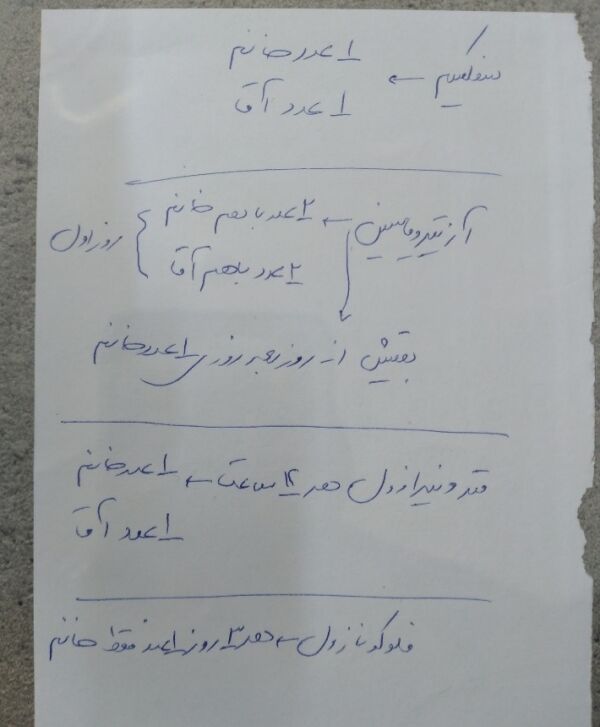 سفکسیم ← 1 عدد خانم
1 عدد آقا
آزیترومایسین ← 2 عدد باهم خانم
2 عدد باهم آقا
روز اول
بقیش از روز بعد روزی 1 عدد خانم
مترونیدازول هر 12 ساعت ← 1 عدد خانم
1 عدد آقا
فلوکونازول ← هر 3 روز 1 عدد فقط خانم